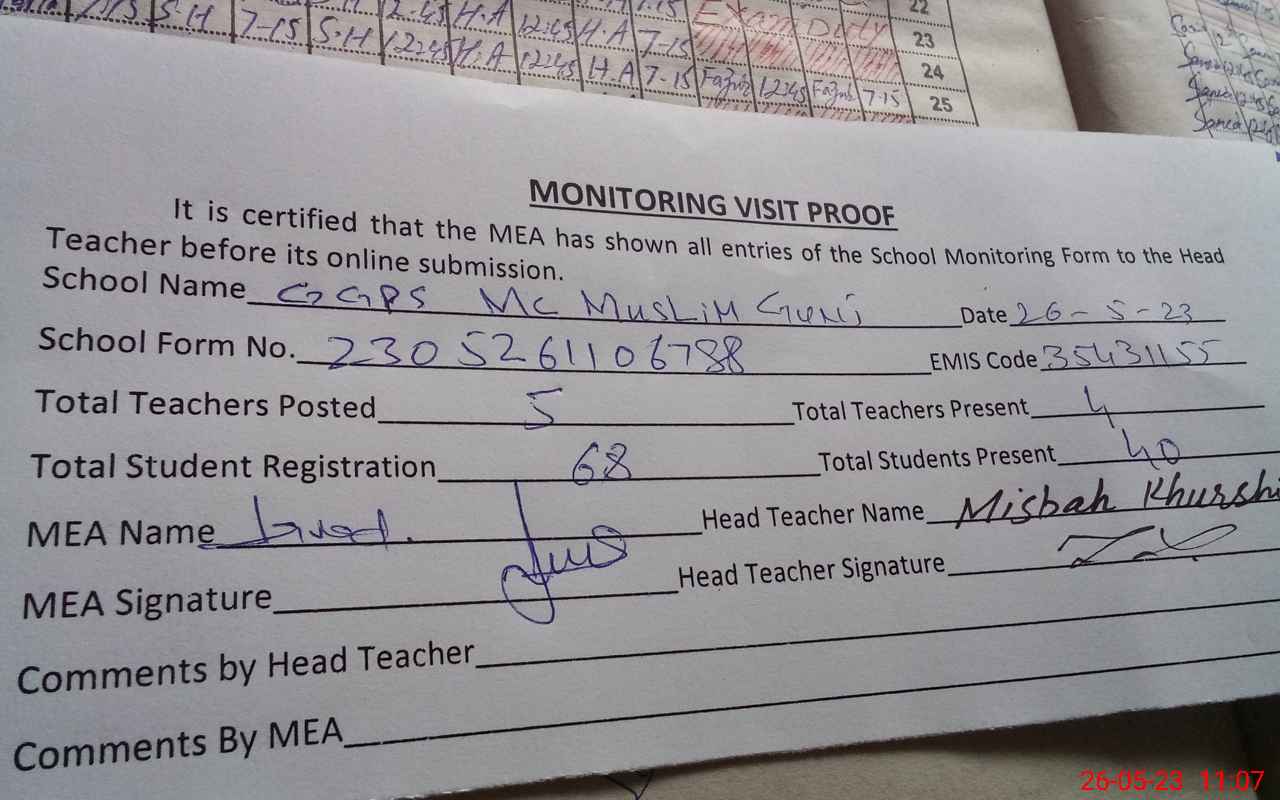 7-15 S.H 7-15 S.H 12:45 H.A 12:45 H.A 7-15 Exam Duty 23
12:45 H.A 12:45 H.A 7-15 24
12:45 7-15 25
22
MONITORING VISIT PROOF
It is certified that the MEA has shown all entries of the School Monitoring Form to the Head
Teacher before its online submission.
School Name GGPS MC MUSLIM GUNJ Date 26-5-23
School Form No. 2305261106788 EMIS Code 35431155
Total Teachers Posted 5 Total Teachers Present 4
Total Student Registration 68 Total Students Present 40
MEA Name Head Teacher Name Misbah Khurshi
MEA Signature Head Teacher Signature
Comments by Head Teacher
Comments By MEA
26-05-23 11:07